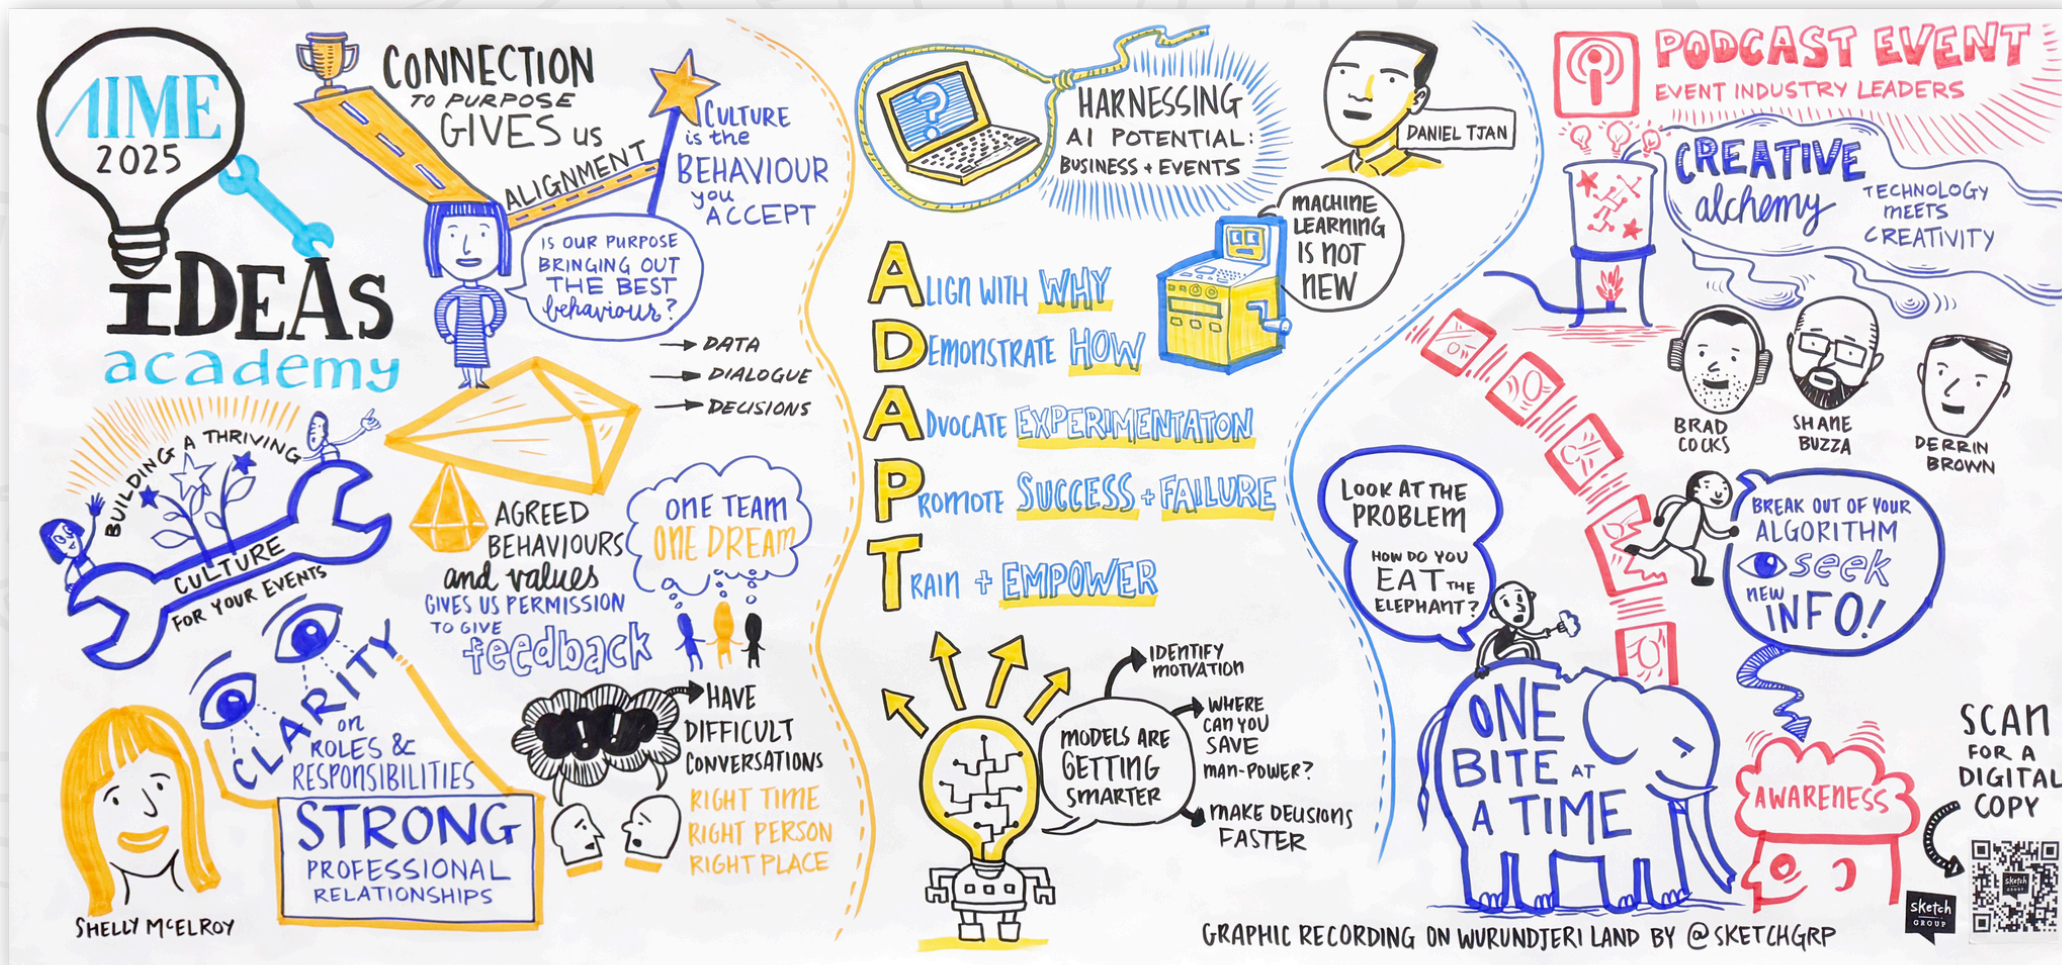 AIME
2025
iDEAs
academy
CONNECTION
TO PURPOSE
GIVES US
ALIGNMENT
CULTURE
is the
BEHAVIOUR
you
ACCEPT
IS OUR PURPOSE
BRINGING OUT
THE BEST
behaviour?
DATA
DIALOGUE
DECISIONS
BUILDING A THRIVING
CULTURE
FOR YOUR EVENTS
AGREED
BEHAVIOURS
and values
GIVES US PERMISSION
TO GIVE
feedback
ONE TEAM
ONE DREAM
CLARITY
on
ROLES &
RESPONSIBILITIES
STRONG
PROFESSIONAL
RELATIONSHIPS
SHELLY McELROY
!!
HAVE
DIFFICULT
CONVERSATIONS
RIGHT TIME
RIGHT PERSON
RIGHT PLACE
?
HARNESSING
AI POTENTIAL:
BUSINESS + EVENTS
DANIEL TJAN
MACHINE
LEARNING
IS NOT
NEW
ALIGN WITH WHY
DEMONSTRATE HOW
ADVOCATE EXPERIMENTATON
PROMOTE SUCCESS + FAILURE
TRAIN + EMPOWER
MODELS ARE
GETTING
SMARTER
IDENTIFY
MOTVATION
WHERE
CAN YOU
SAVE
MAN-POWER?
MAKE DECISIONS
FASTER
PODCAST EVENT
EVENT INDUSTRY LEADERS
CREATIVE
alchemy
TECHNOLOGY
MEETS
CREATIVITY
BRAD
COCKS
SHANE
BUZZA
DERRIN
BROWN
LOOK AT THE
PROBLEM
HOW DO YOU
EAT THE
ELEPHANT?
BREAK OUT OF YOUR
ALGORITHM
seek
NEW
INFO!
ONE
BITE AT
A TIME
AWARENESS
SCAN
FOR A
DIGITAL
COPY
sketch
GROUP
GRAPHIC RECORDING ON WURUNDJERI LAND BY @SKETCHGRP